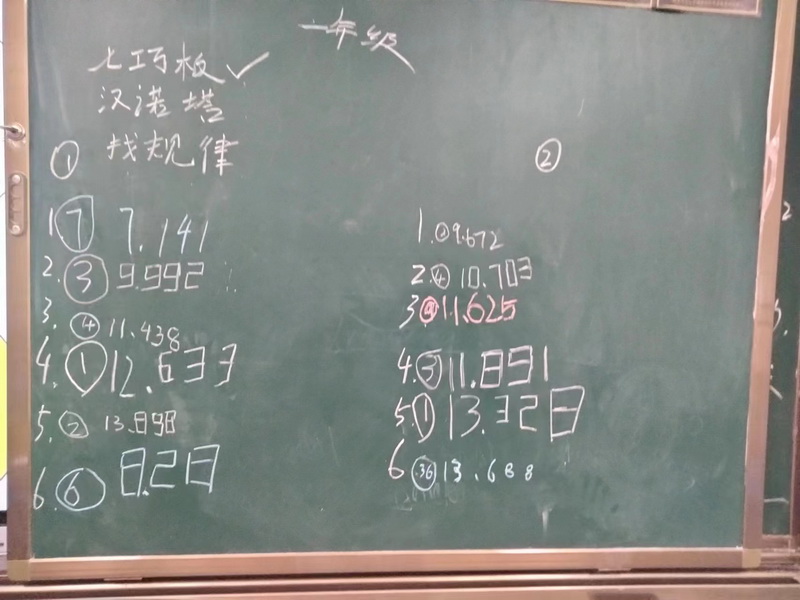 一年级
七巧板✓
汉诺塔
① 找规律
1. ⑦ 7.141
2. ③ 9.992
3. ④ 11.438
4. ① 12.633
5. ② 13.898
6. ⑥ 8.28
②
1. 9.672
2. ④ 10.703
3 11.625
4. ③ 11.891
5. ① 13.328
6 13.688